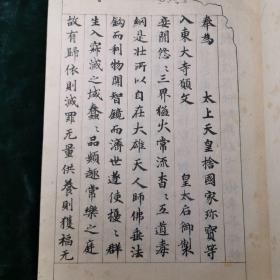 奉為　　太上天皇捨國家珎寶等
入東大寺願文　　皇太后御製
妾聞悠〻三界猛火常流杳〻五道毒
網是壯所以自在大雄天人師佛垂法
鈎而利物開智鏡而濟世遂使擾〻群
生入寂滅之域蠢〻品類趣常樂之庭
故有歸依則滅罪无量供養則獲福无